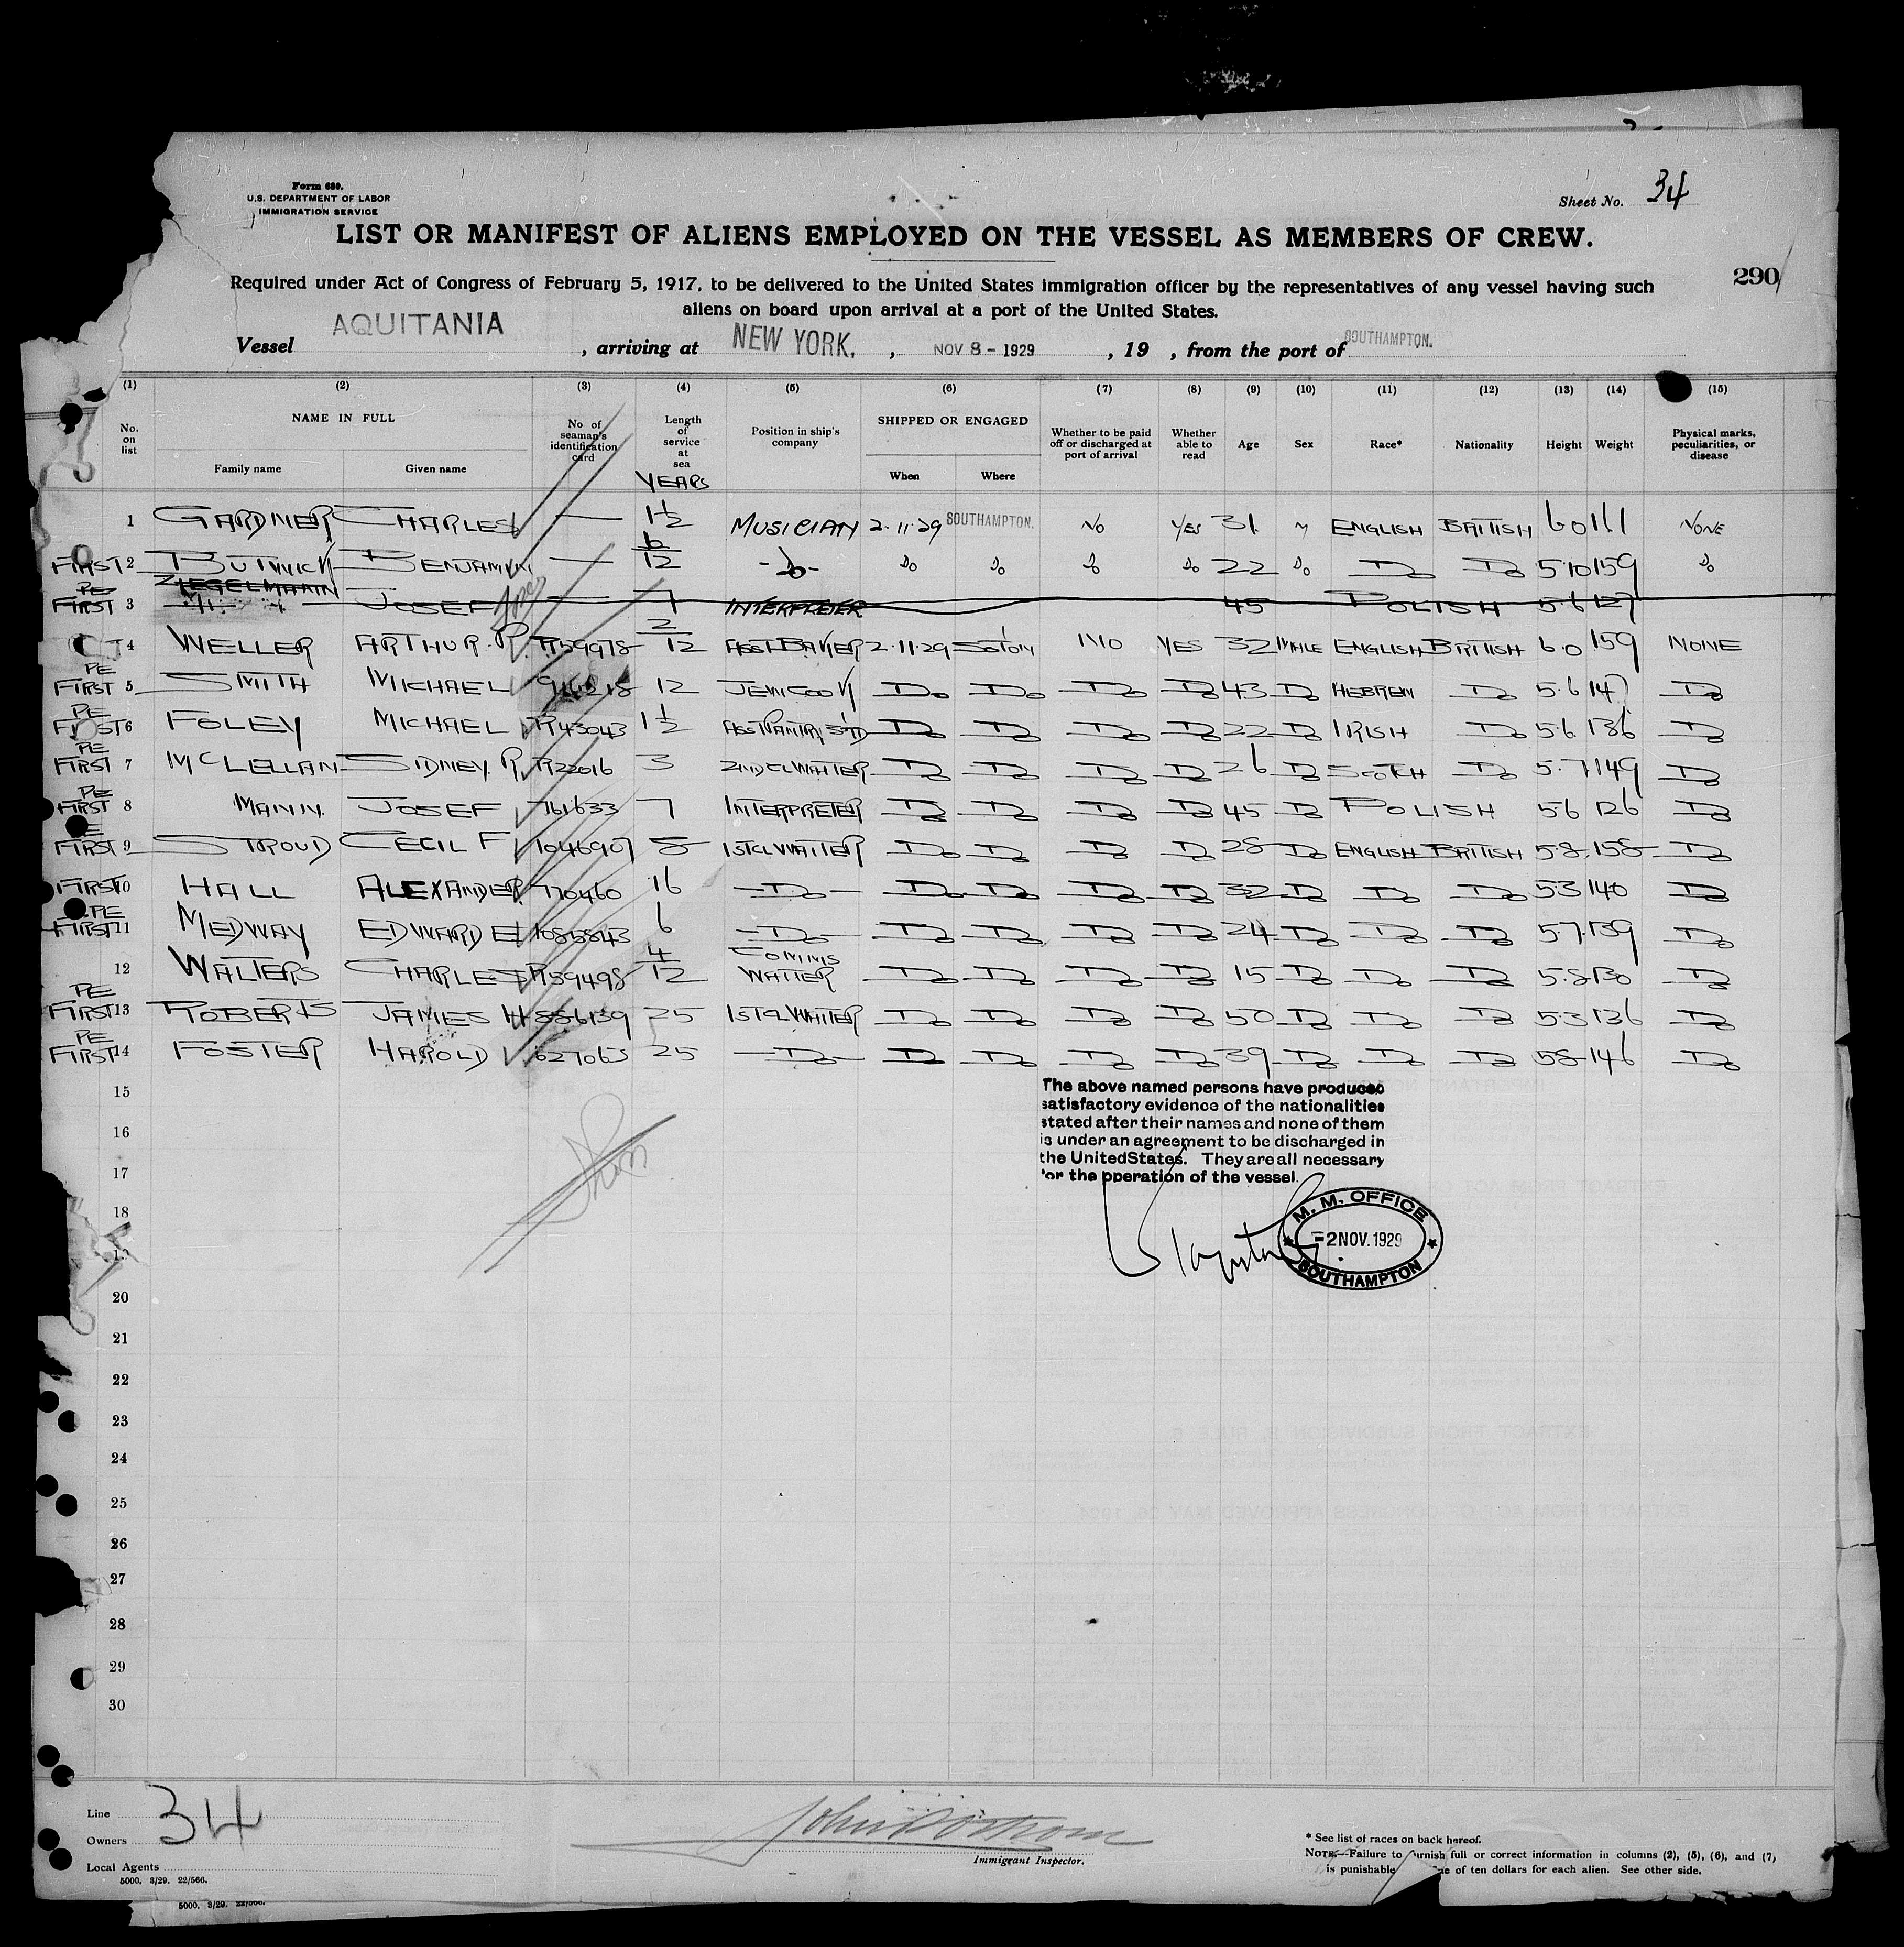 Form 680.
U.S. DEPARTMENT OF LABOR
IMMIGRATION SERVICE
Sheet No. 34
LIST OR MANIFEST OF ALIENS EMPLOYED ON THE VESSEL AS MEMBERS OF CREW.
290
Required under Act of Congress of February 5, 1917, to be delivered to the United States immigration officer by the representatives of any vessel having such
aliens on board upon arrival at a port of the United States.
Vessel AQUITANIA, arriving at NEW YORK., NOV 8 - 1929, 19 , from the port of SOUTHAMPTON.
(1) (2) (3) (4) (5) (6) (7) (8) (9) (10) (11) (12) (13) (14) (15)
No. on list NAME IN FULL Family name Given name No of seaman's identification card Length of service at sea YEARS Position in ship's company SHIPPED OR ENGAGED When Where Whether to be paid off or discharged at port of arrival Whether able to read Age Sex Race* Nationality Height Weight Physical marks, peculiarities, or disease
1 GARDNER CHARLES — 1½ MUSICIAN 2.11.29 SOUTHAMPTON. NO YES 31 M ENGLISH BRITISH 6 0 161 NONE
FIRST 2 BENJAMIN — 6/12 -Do- Do Do Do Do 22 Do Do Do 5·10 159 Do
PE FIRST 3 ZIEGELMANN JOSEF — 7 INTERPRETER 45 POLISH 5·6 127
4 WELLER ARTHUR. R. R159978 2/12 ASST BAKER 2.11.29 SOTON NO YES 32 MALE ENGLISH BRITISH 6·0 159 NONE
PE FIRST 5 SMITH MICHAEL 12 JEW COOK Do Do Do Do 43 Do HEBREW Do 5·6 147 Do
PE FIRST 6 FOLEY MICHAEL R43043 1½ ASST PANTRY STD Do Do Do Do 22 Do IRISH Do 5·6 136 Do
PE FIRST 7 McLELLAN SIDNEY. R. R22016 3 2ND CL WAITER Do Do Do Do 26 Do SCOTCH Do 5·7 149 Do
PE FIRST 8 MANN. JOSEF 761633 7 INTERPRETER Do Do Do Do 45 Do POLISH 5 6 126 Do
PE FIRST 9 STROUD CECIL F 1046907 8 1ST CL WAITER Do Do Do Do 28 Do ENGLISH BRITISH 5·8 158 Do
FIRST 10 HALL ALEXANDER 770460 16 —Do— Do Do Do Do 32 Do Do Do 5 3 140 Do
PE FIRST 11 MEDWAY EDWARD E 1085843 6 —Do— Do Do Do Do 24 Do Do Do 5·7 139 Do
12 WALTERS CHARLES R159498 4/12 COMMIS WAITER Do Do Do Do 15 Do Do Do 5·8 130 Do
PE FIRST 13 ROBERTS JAMES H 886139 25 1ST CL WAITER Do Do Do Do 50 Do Do Do 5·3 136 Do
PE FIRST 14 FOSTER HAROLD 627063 25 —Do— Do Do Do Do 39 Do Do Do 5 8 146 Do
15
The above named persons have produced
satisfactory evidence of the nationalities
stated after their names and none of them
16
is under an agreement to be discharged in
17
the United States. They are all necessary
for the operation of the vessel.
18
M. M. OFFICE
-2 NOV. 1929
SOUTHAMPTON
19
20
21
22
23
24
25
26
27
28
29
30
Line 34
Owners
Local Agents
5000. 3/29. 22/566.
Immigrant Inspector.
* See list of races on back hereof.
NOTE.—Failure to furnish full or correct information in columns (2), (5), (6), and (7)
is punishable of ten dollars for each alien. See other side.
5000. 3/29. 22/566.